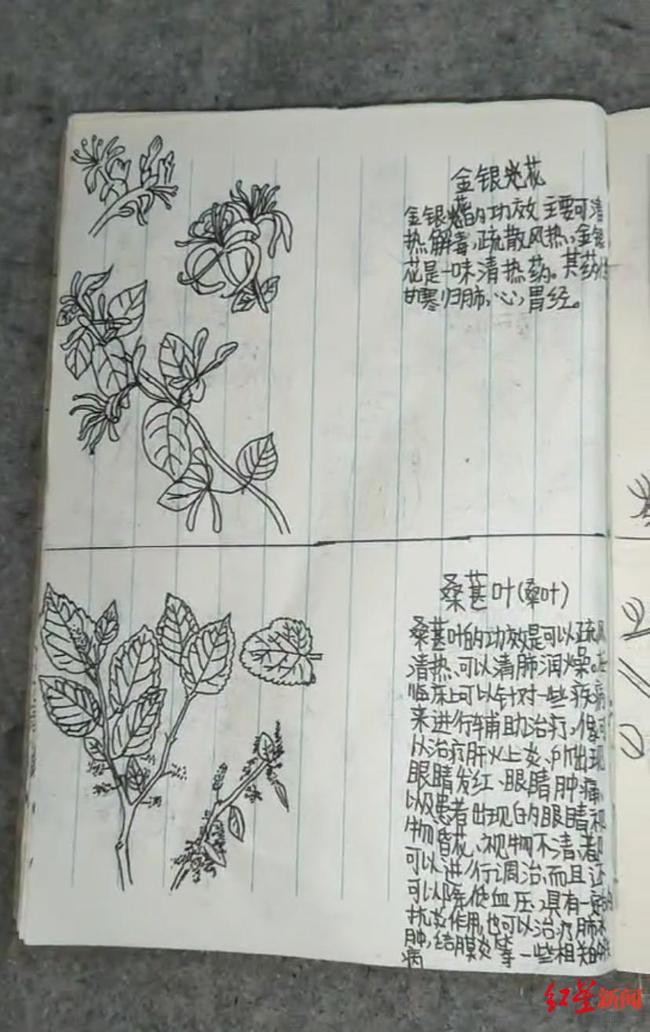 金银花
金银花的功效主要可清
热解毒,疏散风热,金银
花是一味清热药。其药性
甘寒归肺,心,胃经。
桑葚叶(桑叶)
桑葚叶的功效是可以疏风
清热、可以清肺润燥。在
临床上可以针对一些疾病
来进行辅助治疗,像可
以治疗肝火上炎、所出现
眼睛发红、眼睛肿痛
以及患者出现的眼睛视
物昏花、视物不清,都
可以进行调治,而且还
可以降低血压,具有一定的
抗炎作用,也可以治疗肺水
肿,结膜炎等一些相关的疾
病
红星新闻